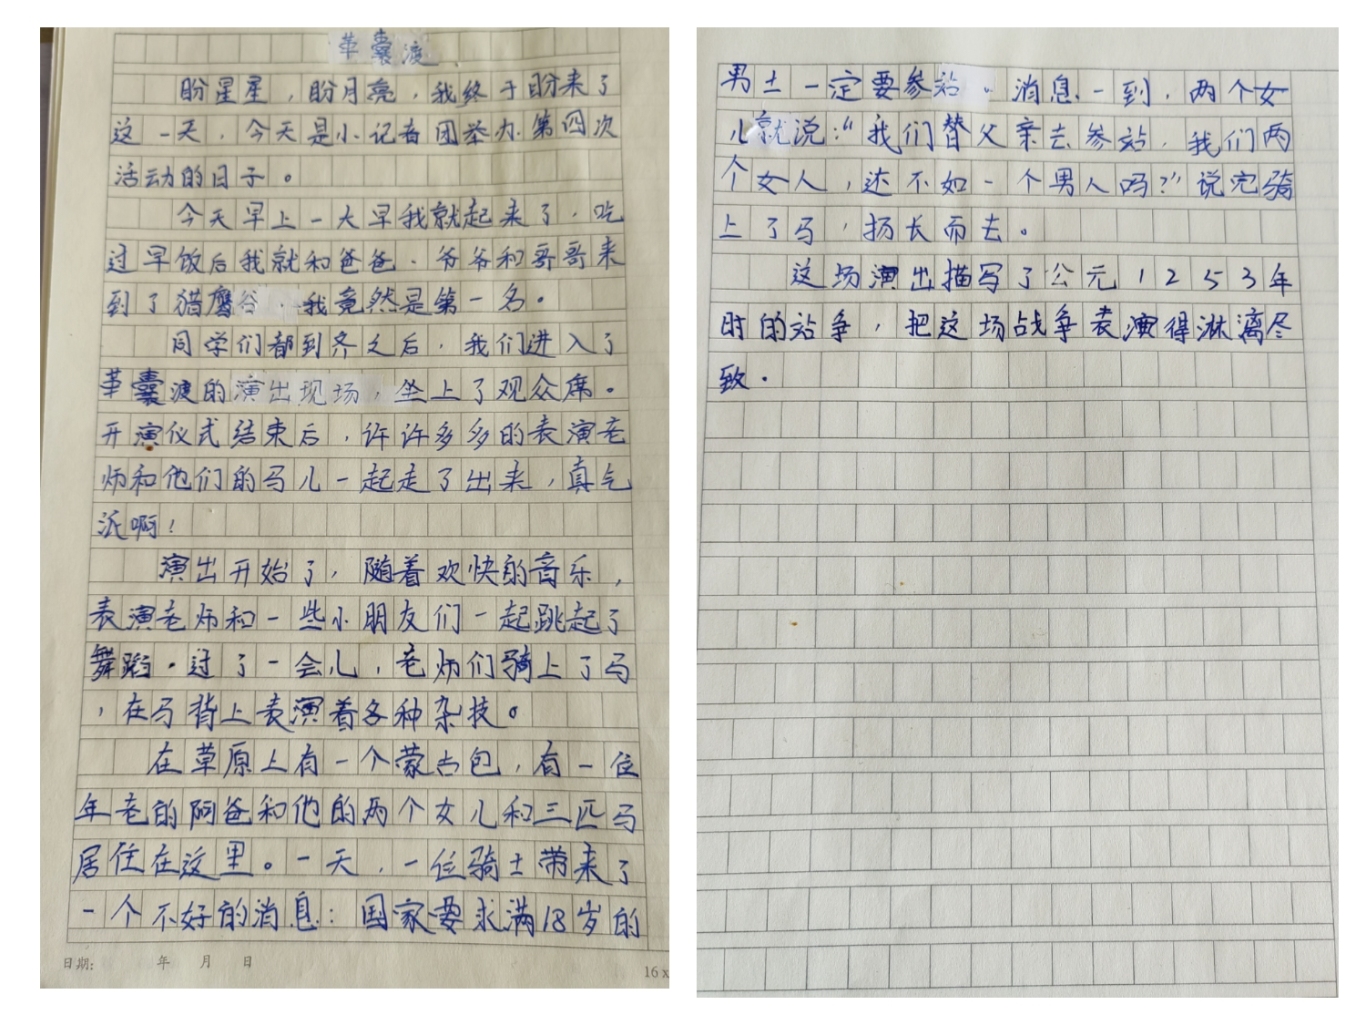 革囊渡
盼星星，盼月亮，我终于盼来了
这一天，今天是小记者团举办第四次
活动的日子。
今天早上一大早我就起来了，吃
过早饭后我就和爸爸、爷爷和哥哥来
到了猎鹰谷，我竟然是第一名。
同学们都到齐之后，我们进入了
革囊渡的演出现场，坐上了观众席。
开演仪式结束后，许许多多的表演老
师和他们的马儿一起走了出来，真气
派啊！
演出开始了，随着欢快的音乐，
表演老师和一些小朋友们一起跳起了
舞蹈。过了一会儿，老师们骑上了马
，在马背上表演着各种杂技。
在草原上有一个蒙古包，有一位
年老的阿爸和他的两个女儿和三匹马
居住在这里。一天，一位骑士带来了
一个不好的消息：国家要求满18岁的
男士一定要参站。消息一到，两个女
儿就说：“我们替父亲去参站，我们两
个女人，还不如一个男人吗？”说完骑
上了马，扬长而去。
这场演出描写了公元1253年
时的站争，把这场战争表演得淋漓尽
致。
日期： 年 月 日
16x